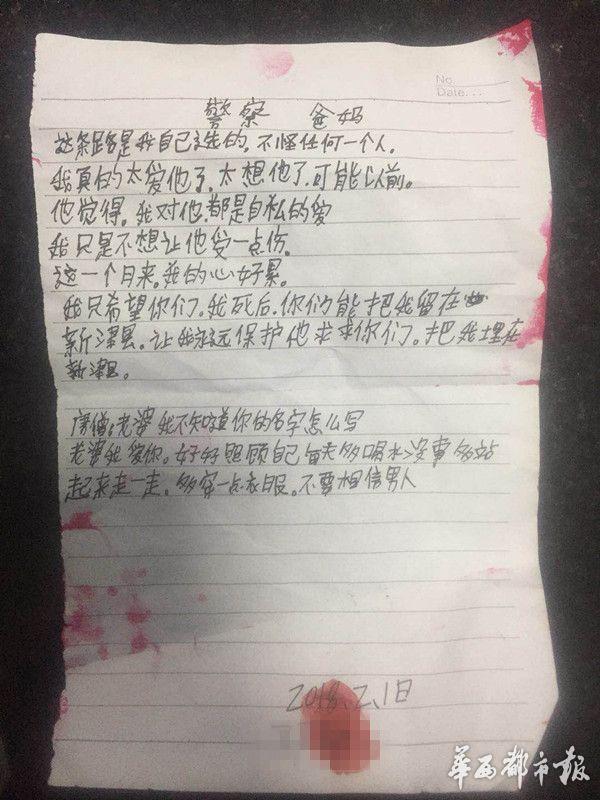 No
Date...
警察 爸妈
这条路是我自己选的，不怪任何一个人.
我真的太爱他了.太想他了.可能以前。
他觉得.我对他.都是自私的爱
我只是不想让他受一点伤.
这一个月来.我的心好累。
我只希望你们.我死后.你们能把我留在
新津县.让我永远保护他求求你们。把我埋在
新津县。
老婆我不知道你的名字怎么写
老婆我爱你.好好照顾自己每天多喝水没事多站
起来走一走.多穿一点衣服。不要相信男人
2018.2.1日
华西都市报